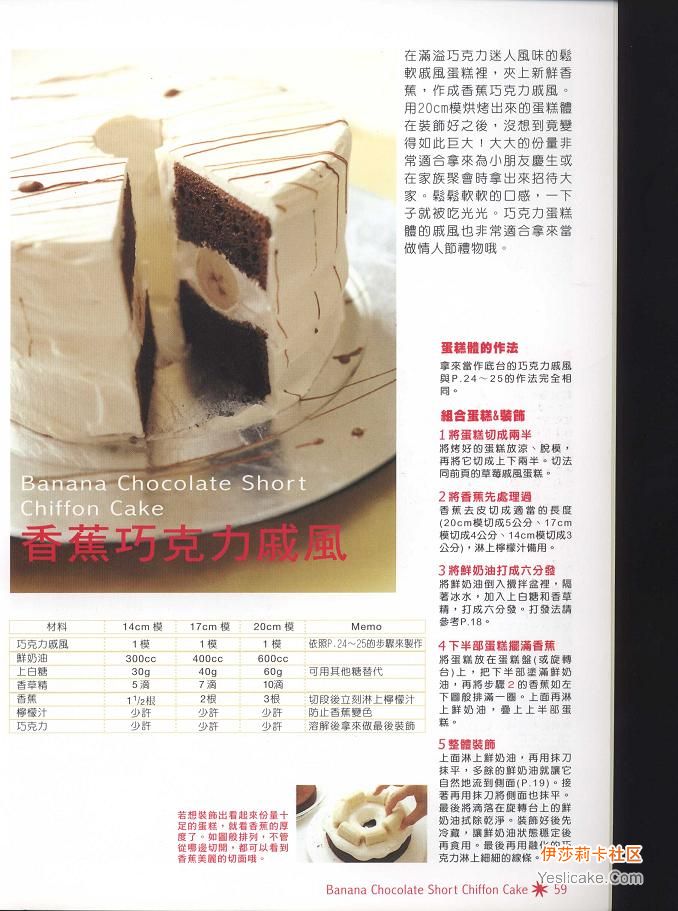 在滿溢巧克力迷人風味的鬆
軟戚風蛋糕裡，夾上新鮮香
蕉，作成香蕉巧克力戚風。
用20cm模烘烤出來的蛋糕體
在裝飾好之後，沒想到竟變
得如此巨大！大大的份量非
常適合拿來為小朋友慶生或
在家族聚會時拿出來招待大
家。鬆鬆軟軟的口感，一下
子就被吃光光。巧克力蛋糕
體的戚風也非常適合拿來當
做情人節禮物哦。
Banana Chocolate Short
Chiffon Cake
香蕉巧克力戚風
材料 14cm 模 17cm 模 20cm 模 Memo
巧克力戚風 1模 1模 1模 依照P.24～25的步驟來製作
鮮奶油 300cc 400cc 600cc
上白糖 30g 40g 60g 可用其他糖替代
香草精 5滴 7滴 10滴
香蕉 1 1/2根 2根 3根 切段後立刻淋上檸檬汁
檸檬汁 少許 少許 少許 防止香蕉變色
巧克力 少許 少許 少許 溶解後拿來做最後裝飾
若想裝飾出看起來份量十
足的蛋糕，就看香蕉的厚
度了。如圖般排列，不管
從哪邊切開，都可以看到
香蕉美麗的切面哦。
蛋糕體的作法
拿來當作底台的巧克力戚風
與P.24～25的作法完全相
同。
組合蛋糕&裝飾
1將蛋糕切成兩半
將烤好的蛋糕放涼、脫模，
再將它切成上下兩半。切法
同前頁的草莓戚風蛋糕。
2將香蕉先處理過
香蕉去皮切成適當的長度
(20cm模切成5公分、17cm
模切成4公分、14cm模切成3
公分)，淋上檸檬汁備用。
3將鮮奶油打成六分發
將鮮奶油倒入攪拌盆裡，隔
著冰水，加入上白糖和香草
精，打成六分發。打發法請
參考P.18。
4下半部蛋糕擺滿香蕉
將蛋糕放在蛋糕盤(或旋轉
台)上，把下半部塗滿鮮奶
油，再將步驟2的香蕉如左
下圖般排滿一圈。上面再淋
上鮮奶油，疊上上半部蛋
糕。
5整體裝飾
上面淋上鮮奶油，再用抹刀
抹平，多餘的鮮奶油就讓它
自然地流到側面(P.19)。接
著再用抹刀將側面也抹平。
最後將滴落在旋轉台上的鮮
奶油拭除乾淨。裝飾好後先
冷藏，讓鮮奶油狀態穩定後
再食用。最後再用融化的巧
克力淋上細細的線條。
伊莎莉卡社区
Yeslicake.Com
Banana Chocolate Short Chiffon Cake 59